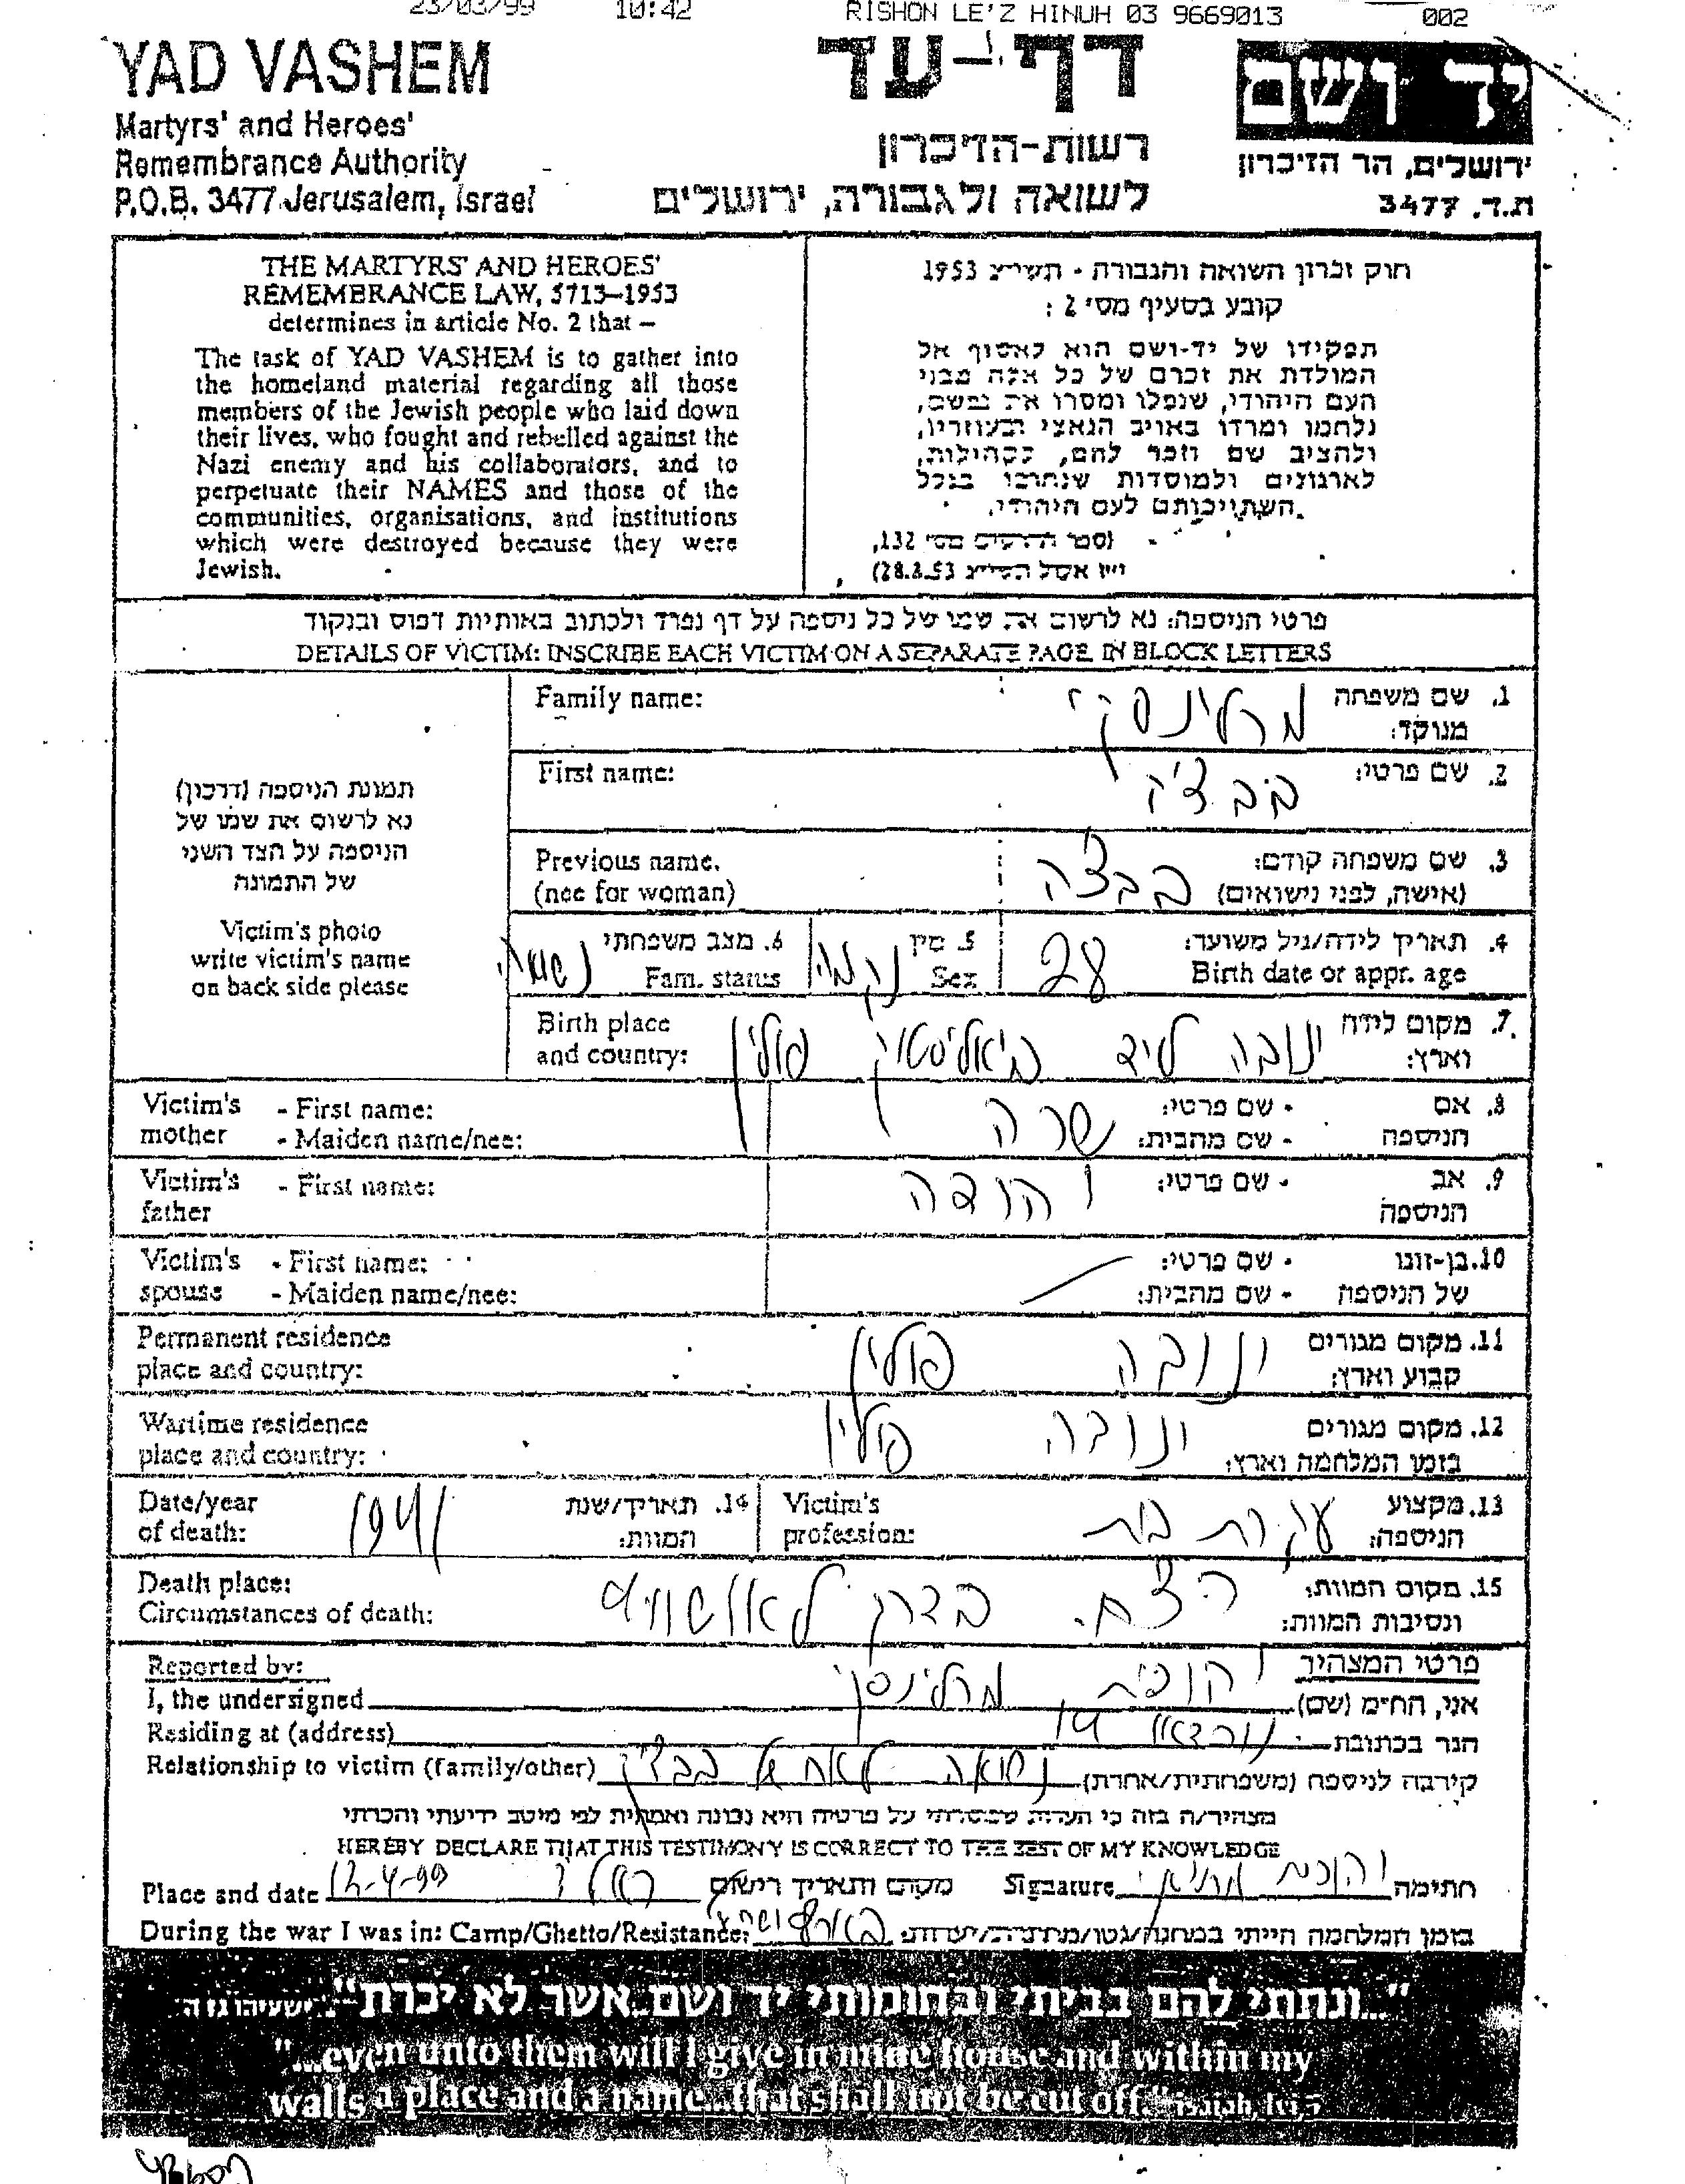 23/03/99 10:42 RISHON LE'Z HINUH 03 9669013 002
YAD VASHEM
Martyrs' and Heroes'
Remembrance Authority
P.O.B. 3477 Jerusalem, Israel
דף-עד
רשות-הזיכרון
לשואה ולגבורה, ירושלים
יד ושם
ירושלים, הר הזיכרון
ת.ד. 3477
THE MARTYRS' AND HEROES'
REMEMBRANCE LAW, 5713–1953
determines in article No. 2 that –
The task of YAD VASHEM is to gather into
the homeland material regarding all those
members of the Jewish people who laid down
their lives, who fought and rebelled against the
Nazi enemy and his collaborators, and to
perpetuate their NAMES and those of the
communities, organisations, and institutions
which were destroyed because they were
Jewish.
חוק זכרון השואה והגבורה - תשי"ג 1953
קובע בסעיף מס' 2 :
תפקידו של יד-ושם הוא לאסוף אל
המולדת את זכרם של כל אלה מבני
העם היהודי, שנפלו ומסרו את נפשם,
נלחמו ומרדו באויב הנאצי ובעוזריו,
ולהציב שם וזכר להם, לקהילות,
לארגונים ולמוסדות שנחרבו בגלל
השתייכותם לעם היהודי.
(ספר החוקים מס' 132,
28.8.53)
פרטי הניספה: נא לרשום את שמו של כל ניספה על דף נפרד ולכתוב באותיות דפוס ובנקוד
DETAILS OF VICTIM: INSCRIBE EACH VICTIM ON A SEPARATE PAGE IN BLOCK LETTERS
תמונת הניספה (דרכון)
נא לרשום את שמו של
הניספה על הצד השני
של התמונה
Victim's photo
write victim's name
on back side please
Family name: מרלינסקי 1. שם משפחה
מנוקד:
First name: בבצ'ה 2. שם פרטי:
Previous name. בבצ'ה 3. שם משפחה קודם:
(nee for woman) (אישה, לפני נישואים)
4. תאריך לידה/גיל משוער: 28 5. מין נקבה 6. מצב משפחתי נשואה
Birth date or appr. age Sex Fam. status
Birth place ינובה ליד ביאליסטוק פולין 7. מקום לידה
and country: וארץ:
Victim's - First name: שרה - שם פרטי: 8. אם
mother - Maiden name/nee: - שם מהבית: הניספה
Victim's - First name: יהודה - שם פרטי: 9. אב
father הניספה
Victim's - First name: - שם פרטי: 10. בן-זוגו
spouse - Maiden name/nee: - שם מהבית: של הניספה
Permanent residence ינובה פולין 11. מקום מגורים
place and country: קבוע וארץ:
Wartime residence ינובה פולין 12. מקום מגורים
place and country: בזמן המלחמה וארץ:
Date/year 1941 14. תאריך/שנת Victim's עקרת בית 13. מקצוע
of death: המוות: profession: הניספה:
Death place: בדרך לאושוויץ 15. מקום המוות:
Circumstances of death: ונסיבות המוות:
Reported by: פרטי המצהיר
I, the undersigned מרלינסקי אני, החי"מ (שם)
Residing at (address) נורדאו 19 הגר בכתובת
Relationship to victim (family/other) נשואה לאח של בבצ'ה קירבה לניספה (משפחתית/אחרת)
מצהיר/ה בזה כי העדות שמסרתי על פרטיה היא נכונה ואמתית לפי מיטב ידיעתי והכרתי
HEREBY DECLARE THAT THIS TESTIMONY IS CORRECT TO THE BEST OF MY KNOWLEDGE
Place and date 12-4-99 ראשל"צ מקום ותאריך רישום Signature חתימה
During the war I was in: Camp/Ghetto/Resistance: בזמן המלחמה הייתי במחנה/גטו/מחתרת/יערות:
"...ונתתי להם בביתי ובחומותי יד ושם אשר לא יכרת" ישעיהו נו ה
"...even unto them will I give in mine house and within my
walls a place and a name...that shall not be cut off."